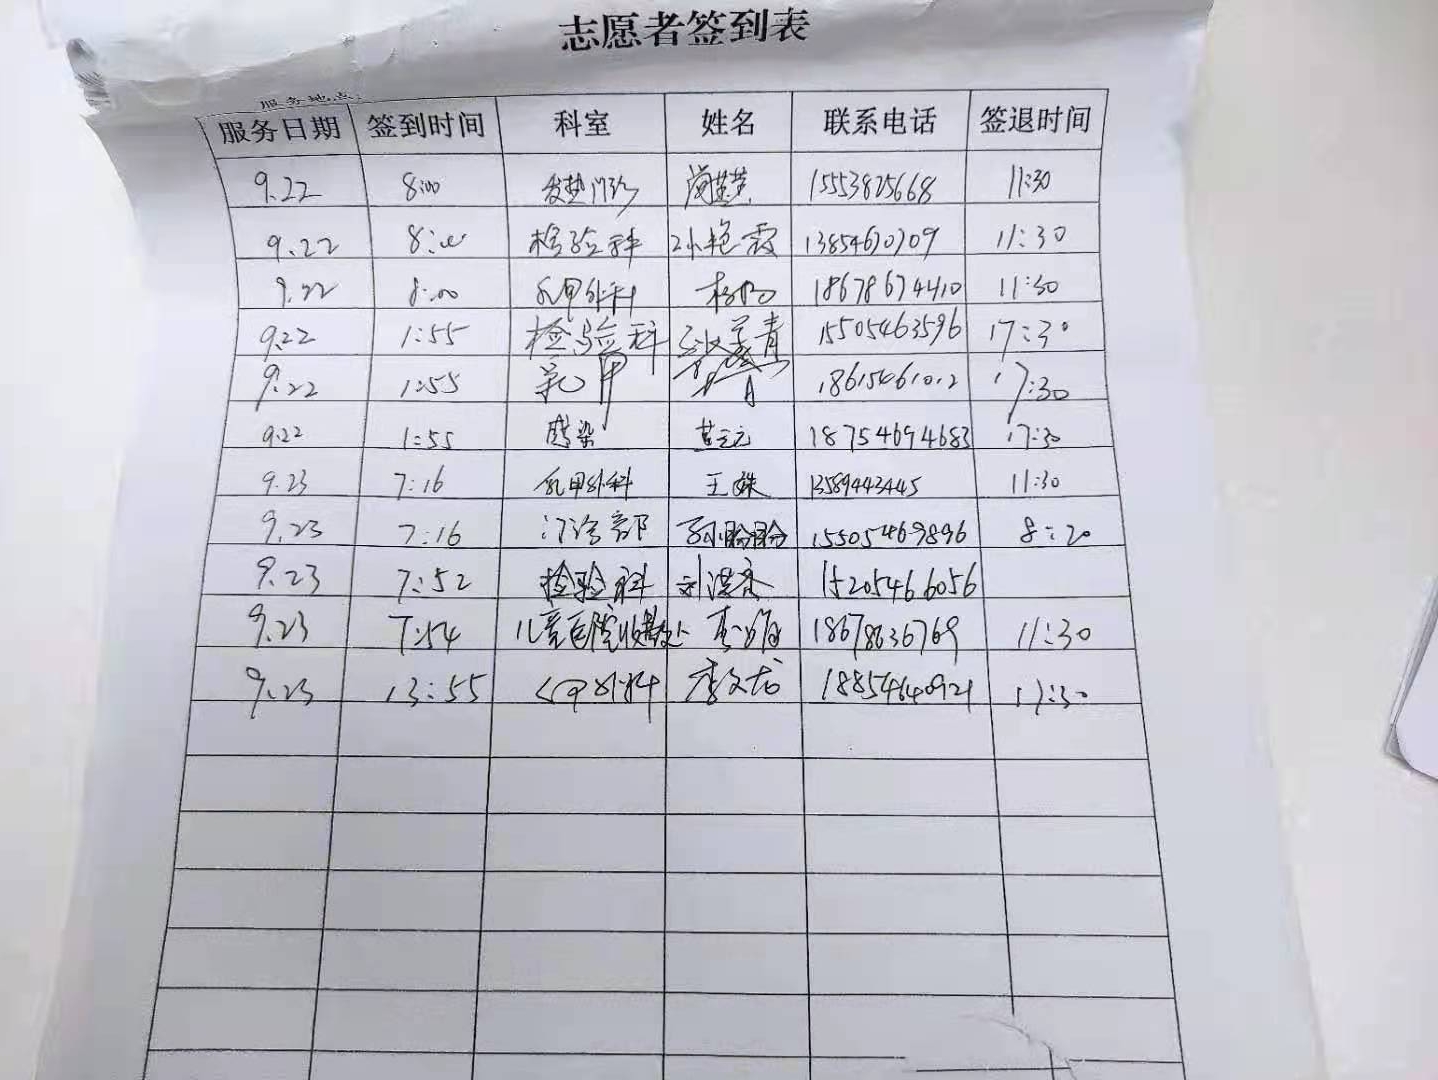 志愿者签到表
服务地点：
服务日期 签到时间 科室 姓名 联系电话 签退时间
9.22 8:00 发热门诊 15553825668 11:30
9.22 8:00 检验科 孙艳霞 13854670709 11:30
9.22 8:00 乳甲外科 杨阳 18678674410 11:30
9.22 1:55 检验科 15505463596 17:30
9.22 1:55 乳甲 18615461012 17:30
9.22 1:55 感染 18754694683 17:30
9.23 7:16 乳甲外科 王姝 13589443445 11:30
9.23 7:16 门诊部 孙盼盼 15505469896 8:20
9.23 7:52 检验科 刘洪永 15205466056
9.23 7:54 儿童医院收费处 李 18678636769 11:30
9.23 13:55 外科 李文龙 18854640921 17:30